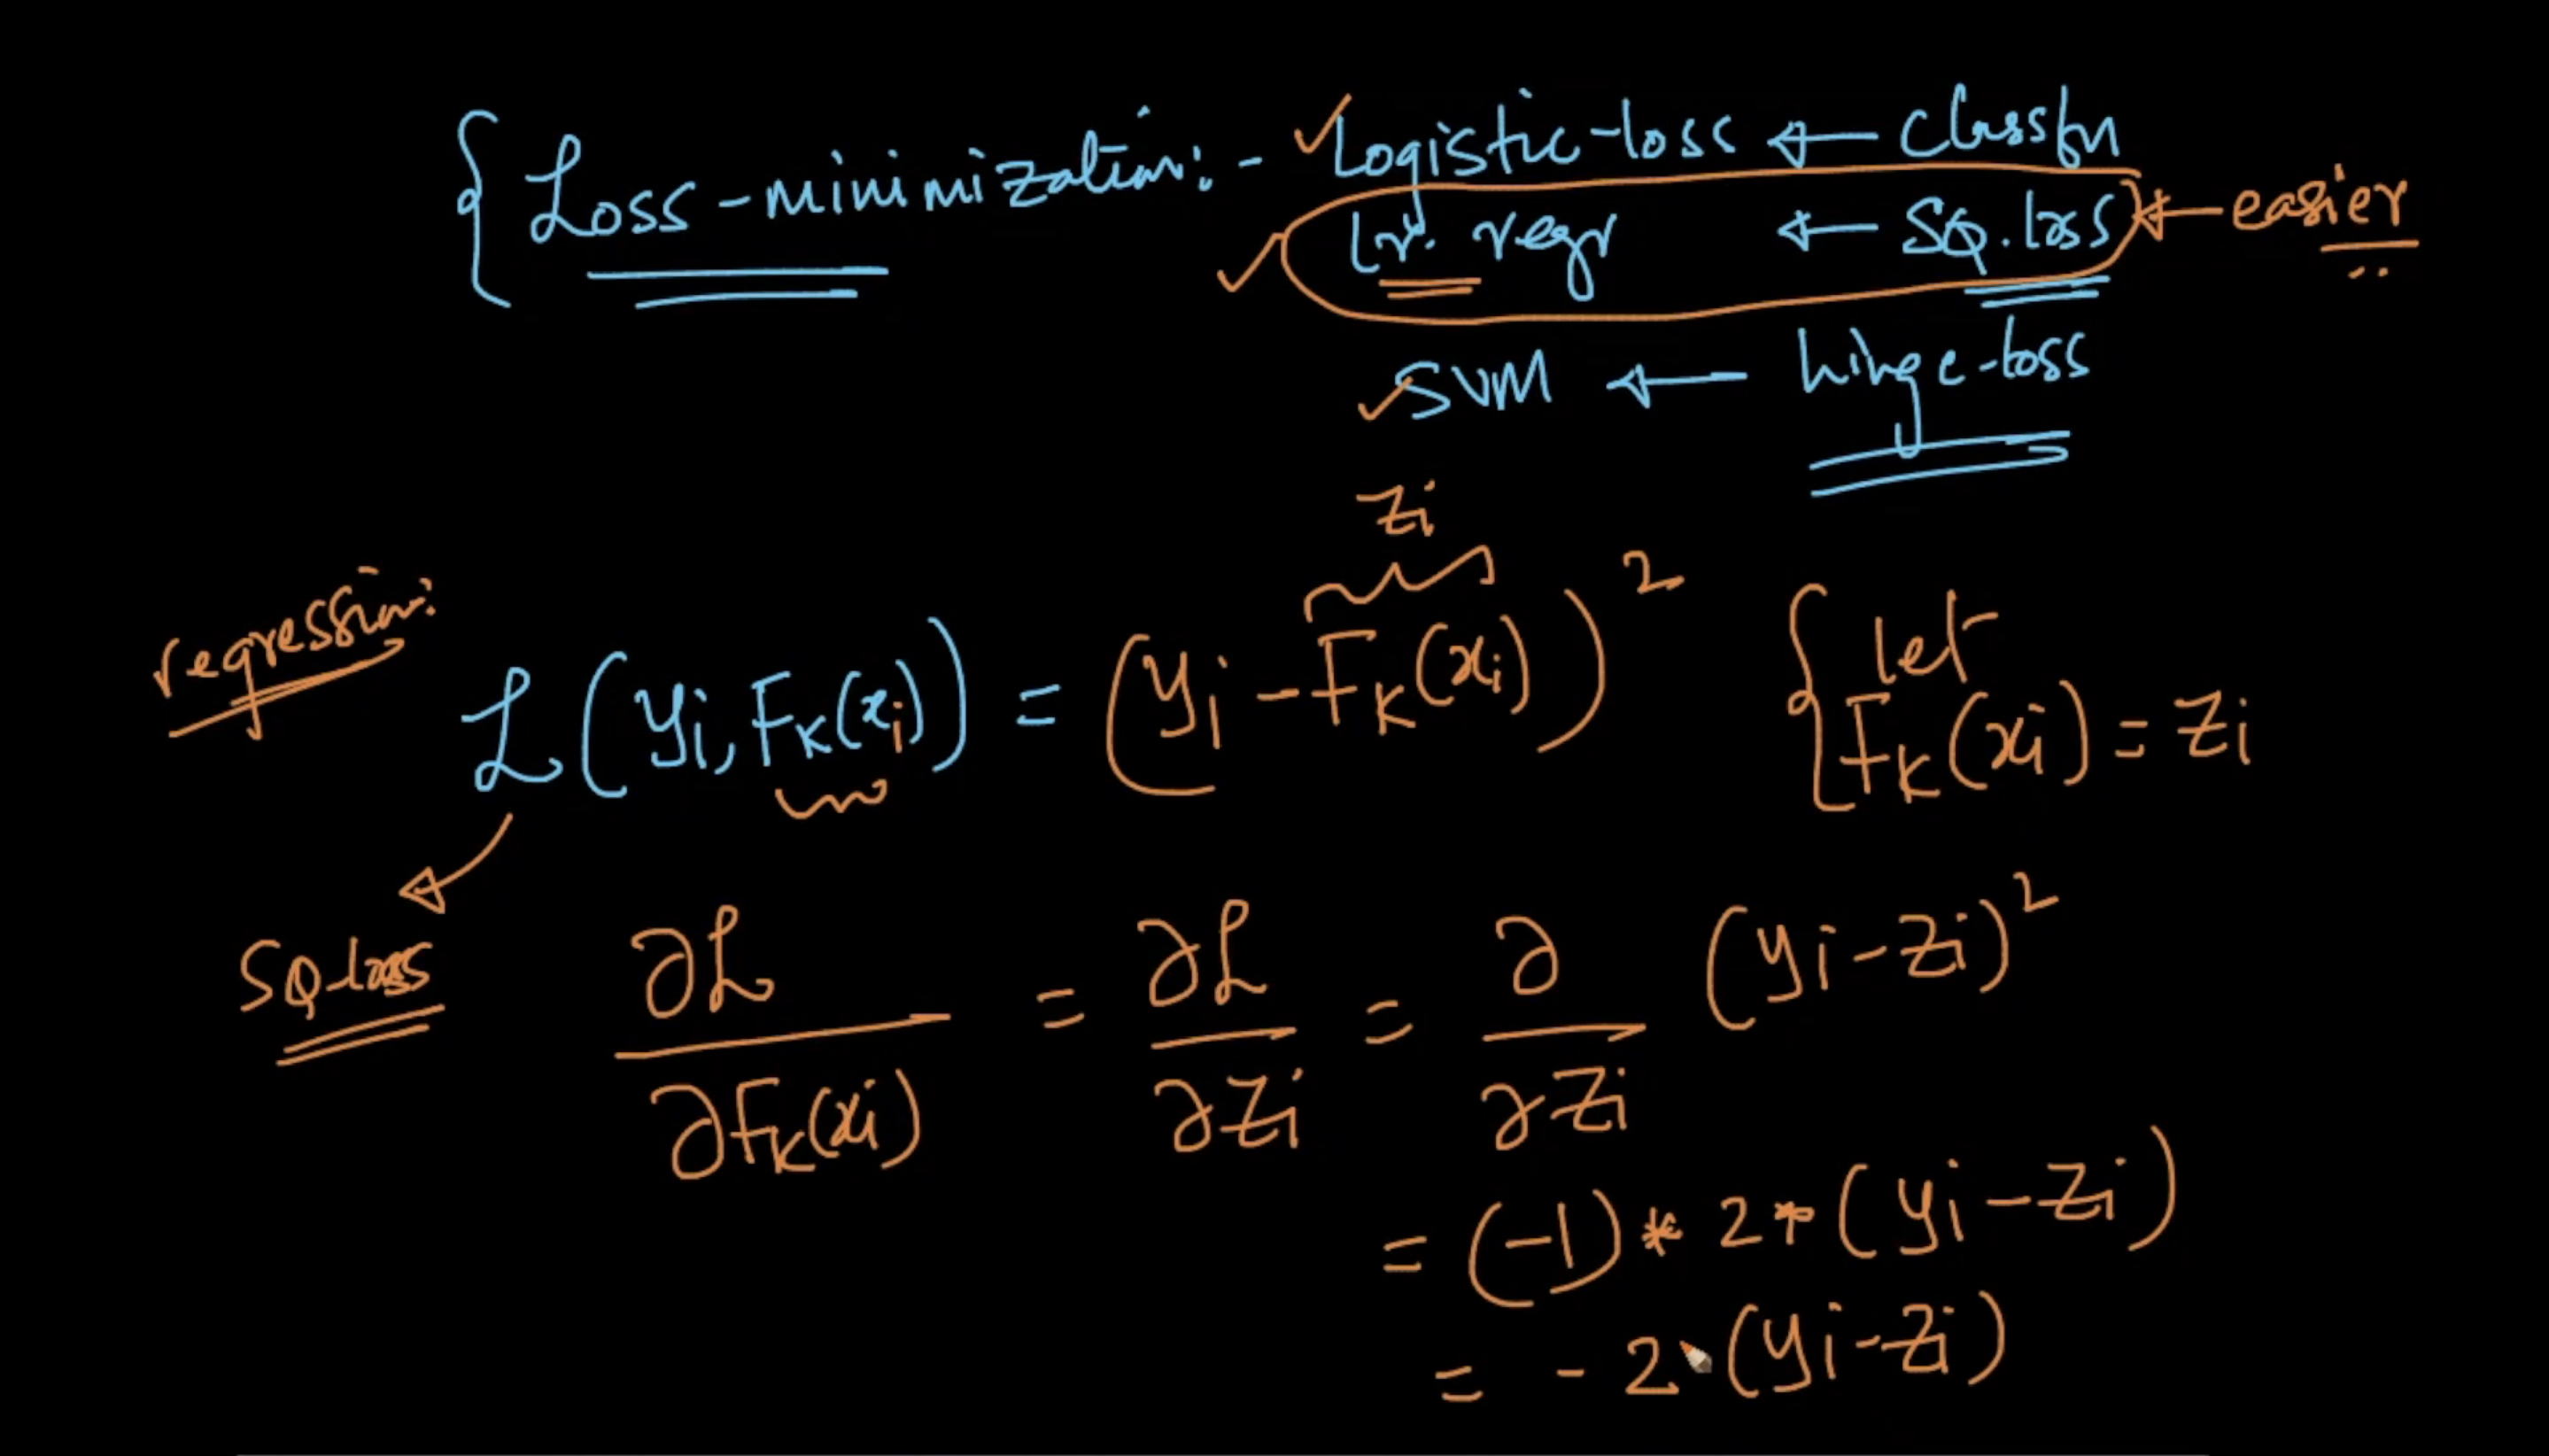 Loss-minimization: - Logistic-loss ← classfn
Lr. regr ← SQ. loss ← easier
SVM ← hinge-loss
zi
regression:
L(yi, Fk(xi)) = (yi - Fk(xi))²
{ let
Fk(xi) = zi
SQ-loss
∂L / ∂Fk(xi) = ∂L / ∂zi = ∂ / ∂zi (yi - zi)²
= (-1) * 2 * (yi - zi)
= - 2 (yi - zi)